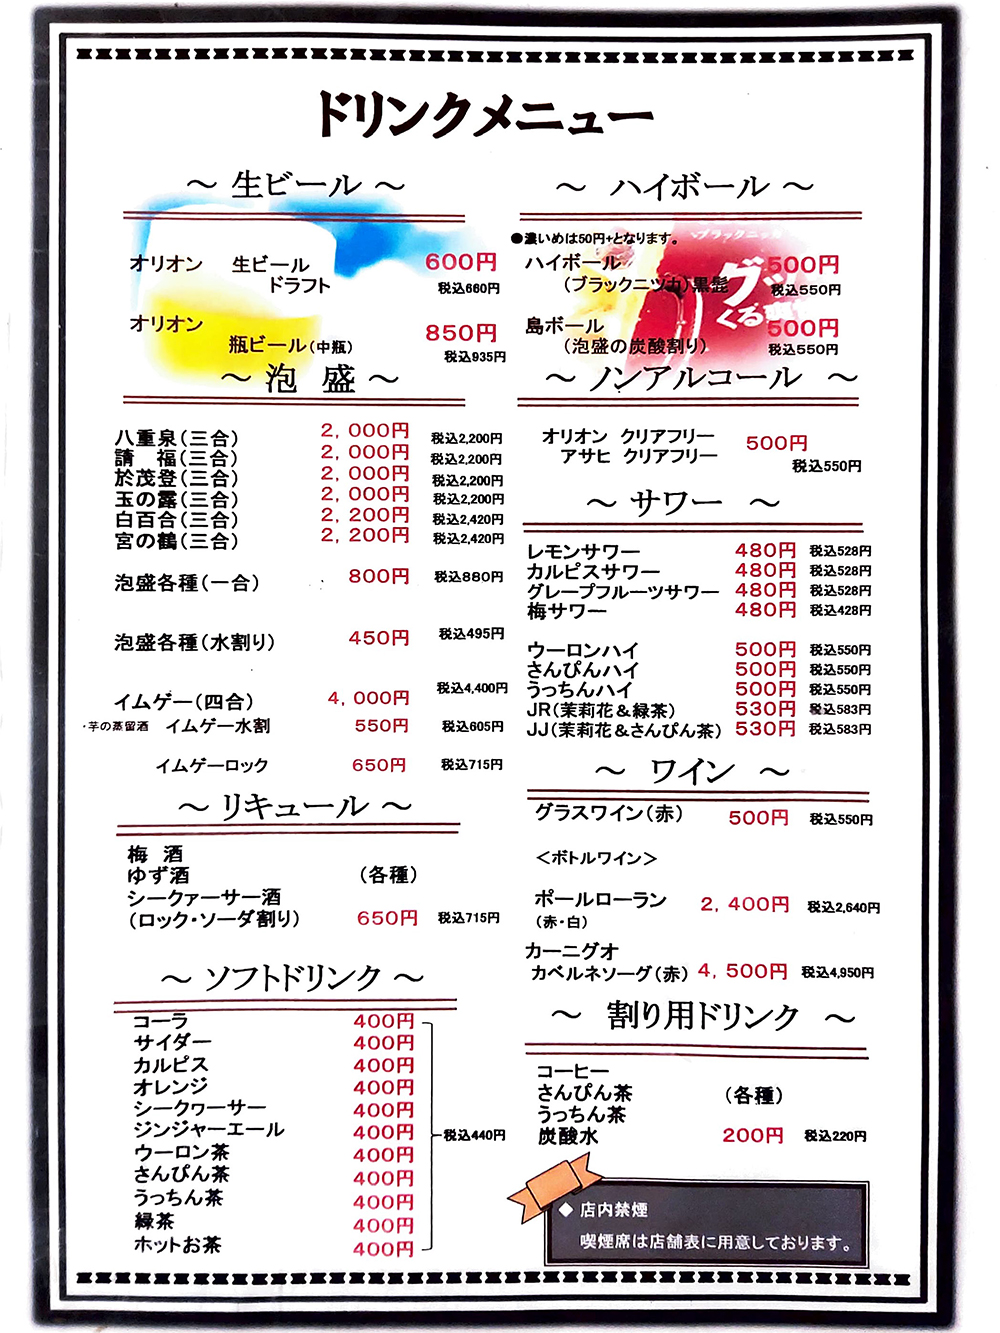 ドリンクメニュー
～ 生ビール ～
オリオン 生ビール 600円
ドラフト 税込660円
オリオン
瓶ビール(中瓶) 850円
税込935円
～ 泡 盛 ～
八重泉(三合) 2,000円 税込2,200円
請 福(三合) 2,000円 税込2,200円
於茂登(三合) 2,000円 税込2,200円
玉の露(三合) 2,000円 税込2,200円
白百合(三合) 2,200円 税込2,420円
宮の鶴(三合) 2,200円 税込2,420円
泡盛各種(一合) 800円 税込880円
泡盛各種(水割り) 450円 税込495円
イムゲー(四合) 4,000円 税込4,400円
・芋の蒸留酒 イムゲー水割 550円 税込605円
イムゲーロック 650円 税込715円
～ リキュール ～
梅 酒
ゆず酒 (各種)
シークァーサー酒
(ロック・ソーダ割り) 650円 税込715円
～ ソフトドリンク ～
コーラ 400円
サイダー 400円
カルピス 400円
オレンジ 400円
シークヮーサー 400円
ジンジャーエール 400円 税込440円
ウーロン茶 400円
さんぴん茶 400円
うっちん茶 400円
緑茶 400円
ホットお茶 400円
～ ハイボール ～
●濃いめは50円+となります。
ハイボール 500円
(ブラックニツカ)黒髭 税込550円
島ボール 500円
(泡盛の炭酸割り) 税込550円
～ ノンアルコール ～
オリオン クリアフリー 500円
アサヒ クリアフリー
税込550円
～ サワー ～
レモンサワー 480円 税込528円
カルピスサワー 480円 税込528円
グレープフルーツサワー 480円 税込528円
梅サワー 480円 税込428円
ウーロンハイ 500円 税込550円
さんぴんハイ 500円 税込550円
うっちんハイ 500円 税込550円
JR(茉莉花＆緑茶) 530円 税込583円
JJ(茉莉花＆さんぴん茶) 530円 税込583円
～ ワイン ～
グラスワイン(赤) 500円 税込550円
＜ボトルワイン＞
ポールローラン 2,400円 税込2,640円
(赤・白)
カーニグオ
カベルネソーグ(赤) 4,500円 税込4,950円
～ 割り用ドリンク ～
コーヒー
さんぴん茶 (各種)
うっちん茶
炭酸水 200円 税込220円
◆ 店内禁煙
喫煙席は店舗表に用意しております。